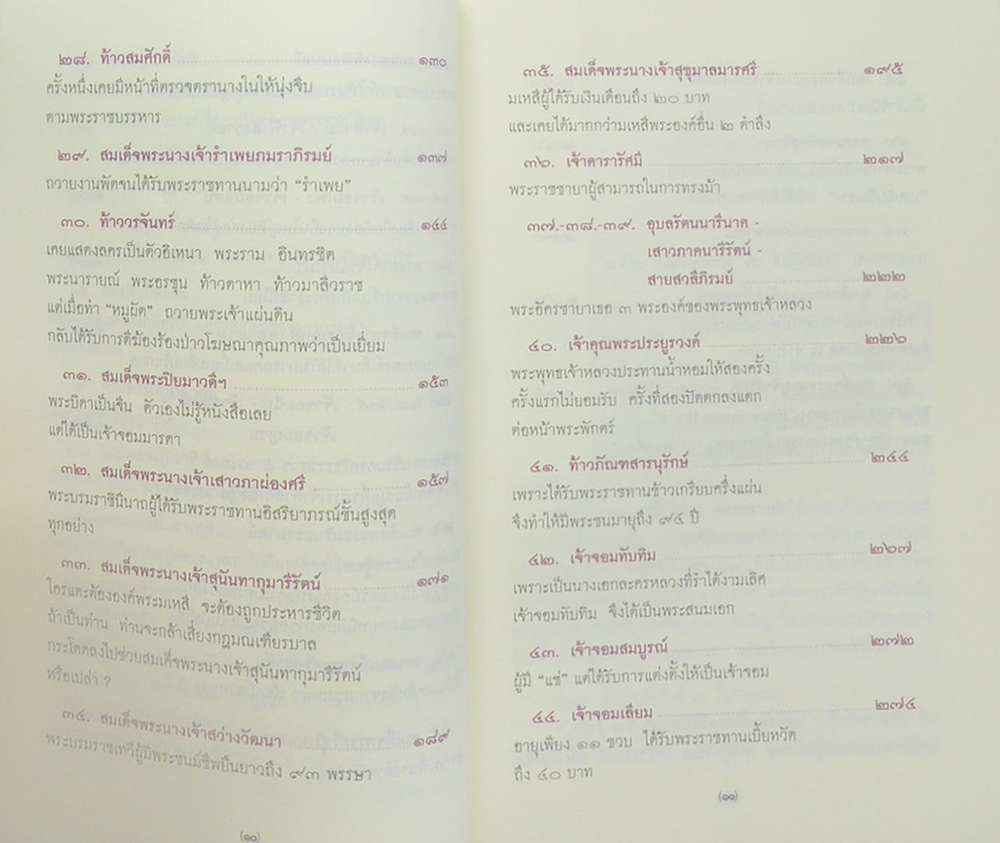 ๒๘. ท้าวสมศักดิ์ ๑๓๐
ครั้งหนึ่งเคยมีหน้าที่ตรวจตรานางในให้นุ่งจีบ
ตามพระราชบรรหาร
๒๙. สมเด็จพระนางเจ้ารำเพยภมราภิรมย์ ๑๓๗
ถวายงานพัดจนได้รับพระราชทานนามว่า “รำเพย”
๓๐. ท้าววรจันทร์ ๑๔๔
เคยแสดงลครเป็นตัวอิเหนา พระราม อินทรชิต
พระนารายณ์ พระอรชุน ท้าวดาหา ท้าวมาลีวราช
แต่เมื่อทำ “หมูผัด” ถวายพระเจ้าแผ่นดิน
กลับได้รับการตีฆ้องร้องป่าวโฆษณาคุณภาพว่าเป็นเยี่ยม
๓๑. สมเด็จพระปิยมาวดีฯ ๑๕๓
พระบิดาเป็นจีน ตัวเองไม่รู้หนังสือเลย
แต่ได้เป็นเจ้าจอมมารดา
๓๒. สมเด็จพระนางเจ้าเสาวภาผ่องศรี ๑๕๗
พระบรมราชินีนาถผู้ได้รับพระราชทานอิสริยาภรณ์ชั้นสูงสุด
ทุกอย่าง
๓๓. สมเด็จพระนางเจ้าสุนันทากุมารีรัตน์ ๑๗๑
ใครแตะต้ององค์พระมเหสี จะต้องถูกประหารชีวิต
ถ้าเป็นท่าน ท่านจะกล้าเสี่ยงกฎมณเฑียรบาล
กระโดดลงไปช่วยสมเด็จพระนางเจ้าสุนันทากุมารีรัตน์
หรือเปล่า ?
๓๔. สมเด็จพระนางเจ้าสว่างวัฒนา ๑๘๙
พระบรมราชเทวีผู้มีพระชนม์ชีพยืนยาวถึง ๙๓ พรรษา
(๑๐)
๓๕. สมเด็จพระนางเจ้าสุขุมาลมารศรี ๑๙๕
มเหสีผู้ได้รับเงินเดือนถึง ๒๐ บาท
และเคยได้มากกว่ามเหสีพระองค์อื่น ๒ ตำลึง
๓๖. เจ้าดารารัศมี ๒๑๗
พระราชชายาผู้สามารถในการทรงม้า
๓๗.-๓๘.-๓๙. อุบลรัตนนารีนาค -
เสาวภาคนารีรัตน์ -
สายสวลีภิรมย์ ๒๒๒
พระอัครชายาเธอ ๓ พระองค์ของพระพุทธเจ้าหลวง
๔๐. เจ้าคุณพระประยูรวงค์ ๒๒๖
พระพุทธเจ้าหลวงประทานน้ำหอมให้สองครั้ง
ครั้งแรกไม่ยอมรับ ครั้งที่สองปัดตกลงแตก
ต่อหน้าพระพักตร์
๔๑. ท้าวภัณฑสารนุรักษ์ ๒๔๔
เพราะได้รับพระราชทานข้าวเกรียบครึ่งแผ่น
จึงทำให้มีพระชนมายุถึง ๙๔ ปี
๔๒. เจ้าจอมทับทิม ๒๖๗
เพราะเป็นนางเอกละครหลวงที่รำได้งามเลิศ
เจ้าจอมทับทิม จึงได้เป็นพระสนมเอก
๔๓. เจ้าจอมสมบูรณ์ ๒๗๒
ผู้มี “แซ่” แต่ได้รับการแต่งตั้งให้เป็นเจ้าจอม
๔๔. เจ้าจอมเลียม ๒๗๔
อายุเพียง ๑๑ ขวบ ได้รับพระราชทานเบี้ยหวัด
ถึง ๔๐ บาท
(๑๑)